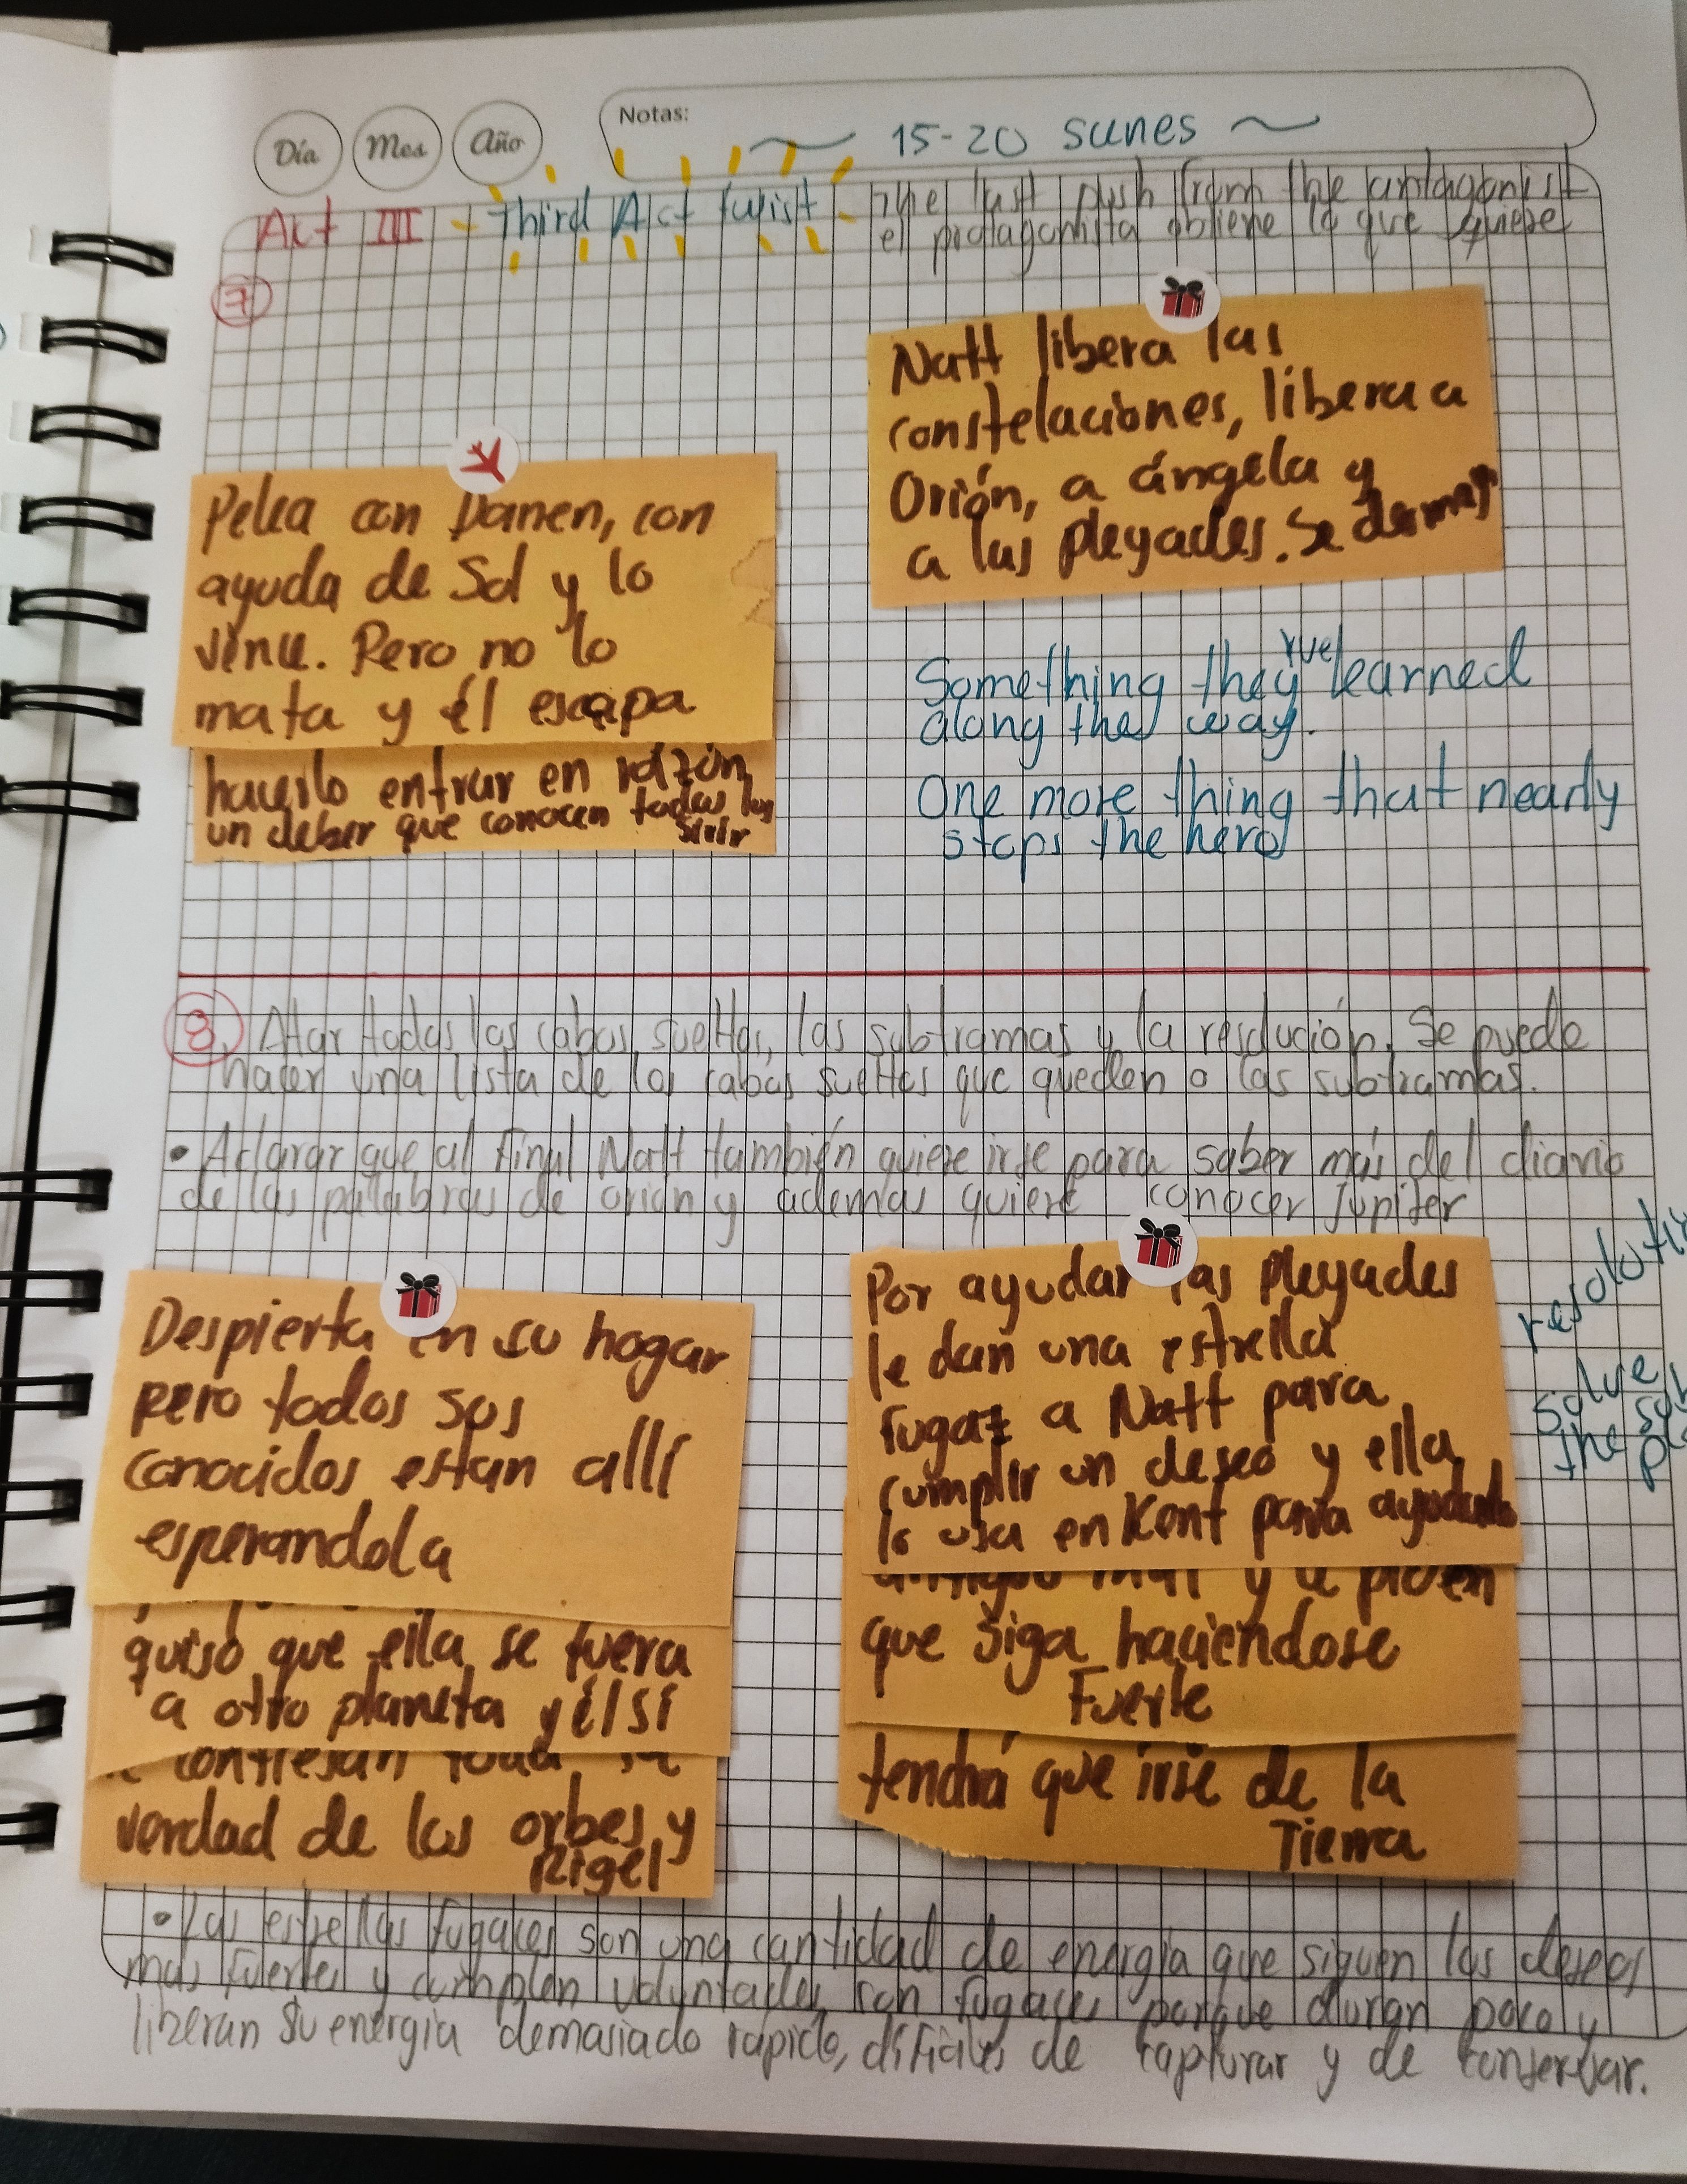 Día Mes Año
Notas:
~ 15-20 scenes ~
Act III - Third Act twist - The last push from the antagonist
el protagonista obtiene lo que quiere
7
Natt libera las
constelaciones, libera a
Orión, a ángela y
a las pleyades. Se
Pelea con Damen, con
ayuda de Sol y lo
vence. Pero no lo
mata y él escapa
hacerlo entrar en razón,
un deber que conocen todas las
Something they've learned
along the way.
One more thing that nearly
stops the hero
8. Atar todos los cabos sueltos, las subtramas y la resolución. Se puede
hacer una lista de los cabos sueltos que queden o las subtramas.
• Aclarar que al final Natt también quiere irse para saber más del diario
de las palabras de orión y además quiere conocer Jupiter
Despierta en su hogar
pero todos sus
conocidos estan allí
esperandola
quiso que ella se fuera
a otro planeta y él sí
confiesan toda la
verdad de los orbes y
Rigel
Por ayudar las pleyades
le dan una estrella
fugaz a Natt para
cumplir un deseo y ella
lo usa en Kent para ayudarlo
y le piden
que siga haciendose
Fuerte
tendrá que irse de la
Tierra
solve
the
• Las estrellas fugaces son una cantidad de energía que siguen los deseos
mas fuertes y cumplen voluntades, son fugaces porque duran poco y
liberan su energía demasiado rápido, difíciles de capturar y de conservar.